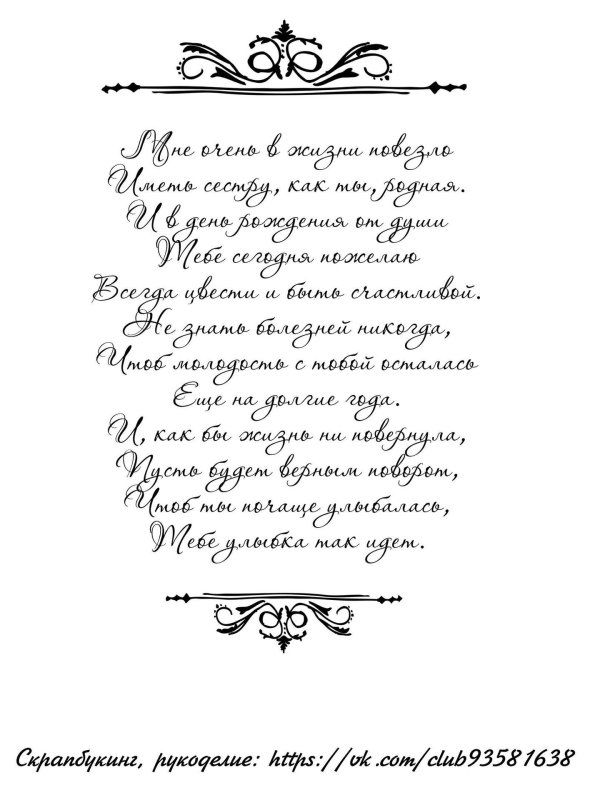 Мне очень в жизни повезло
Иметь сестру, как ты, родная.
И в день рождения от души
Тебе сегодня пожелаю
Всегда цвести и быть счастливой.
Не знать болезней никогда,
Чтоб молодость с тобой осталась
Еще на долгие года.
И, как бы жизнь ни повернула,
Пусть будет верным поворот,
Чтоб ты почаще улыбалась,
Тебе улыбка так идет.
Скрапбукинг, рукоделие: https://vk.com/club93581638